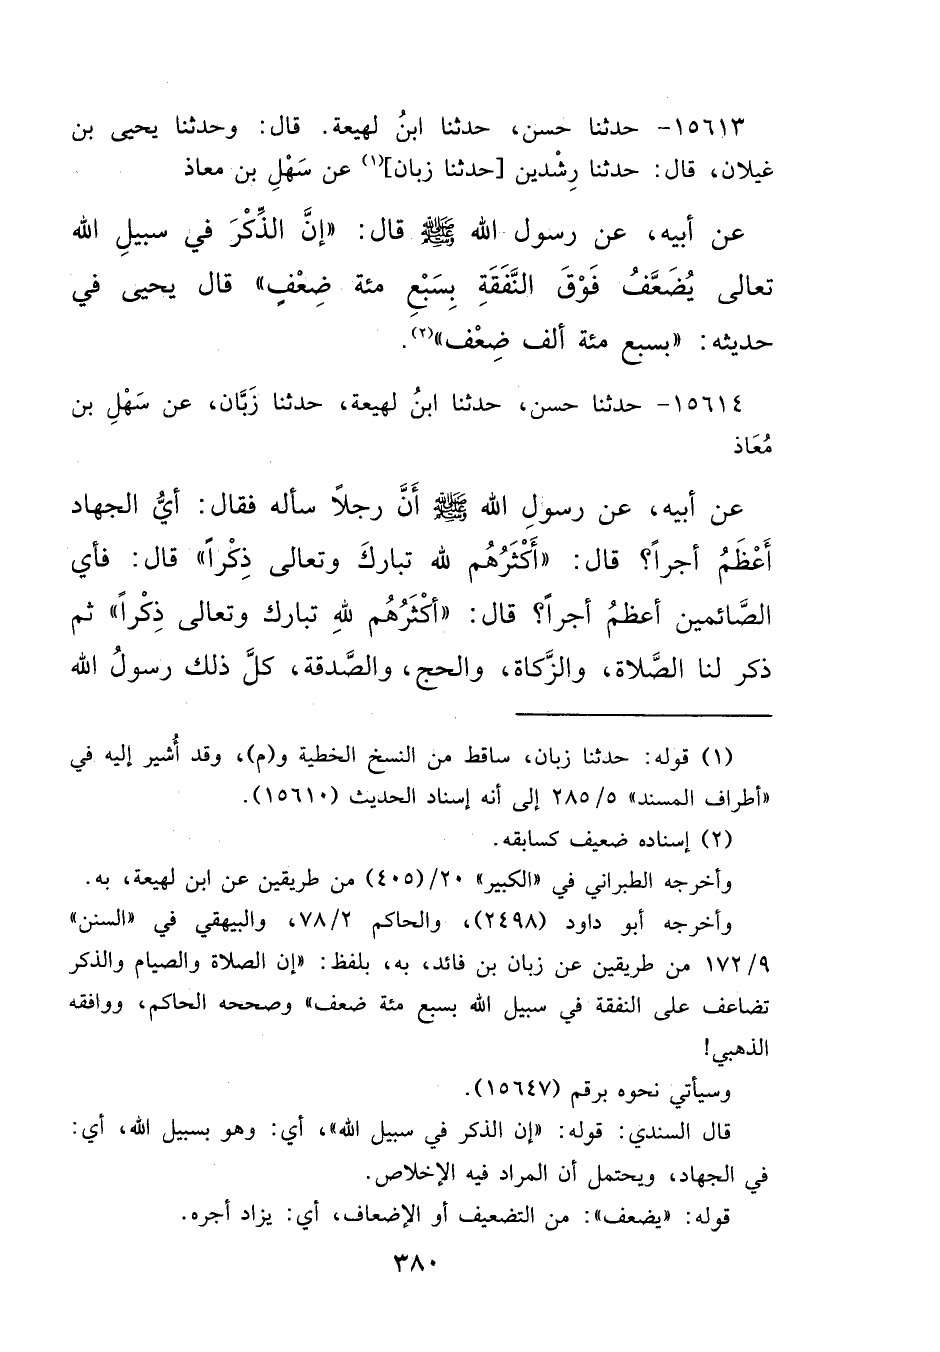 ١٥٦١٣- حدثنا حسن، حدثنا ابنُ لهيعة. قال: وحدثنا يحيى بن
غيلان، قال: حدثنا رِشْدين [حدثنا زبان](١) عن سَهْلِ بن معاذ
عن أبيه، عن رسول الله ﷺ قال: «إنَّ الذِّكْرَ في سبيلِ الله
تعالى يُضَعَّفُ فَوْقَ النَّفَقَةِ بِسَبْعِ مئة ضِعْفٍ» قال يحيى في
حديثه: «بسبع مئة ألف ضِعْف»(٢).
١٥٦١٤- حدثنا حسن، حدثنا ابنُ لهيعة، حدثنا زَبَّان، عن سَهْلِ بن
مُعَاذ
عن أبيه، عن رسولِ الله ﷺ أَنَّ رجلاً سأله فقال: أيُّ الجهاد
أَعْظَمُ أجراً؟ قال: «أَكْثَرُهُم لله تباركَ وتعالى ذِكْراً» قال: فأي
الصَّائمين أعظمُ أجراً؟ قال: «أكْثَرُهُم للهِ تبارك وتعالى ذِكْراً» ثم
ذكر لنا الصَّلاة، والزَّكاة، والحج، والصَّدقة، كلَّ ذلك رسولُ الله
(١) قوله: حدثنا زبان، ساقط من النسخ الخطية و(م)، وقد أُشير إليه في
«أطراف المسند» ٢٨٥/٥ إلى أنه إسناد الحديث (١٥٦١٠).
(٢) إسناده ضعيف كسابقه.
وأخرجه الطبراني في «الكبير» ٢٠/(٤٠٥) من طريقين عن ابن لهيعة، به.
وأخرجه أبو داود (٢٤٩٨)، والحاكم ٧٨/٢، والبيهقي في «السنن»
١٧٢/٩ من طريقين عن زبان بن فائد، به، بلفظ: «إن الصلاة والصيام والذكر
تضاعف على النفقة في سبيل الله بسبع مئة ضعف» وصححه الحاكم، ووافقه
الذهبي!
وسيأتي نحوه برقم (١٥٦٤٧).
قال السندي: قوله: «إن الذكر في سبيل الله»، أي: وهو بسبيل الله، أي:
في الجهاد، ويحتمل أن المراد فيه الإخلاص.
قوله: «يضعف»: من التضعيف أو الإضعاف، أي: يزاد أجره.
٣٨٠